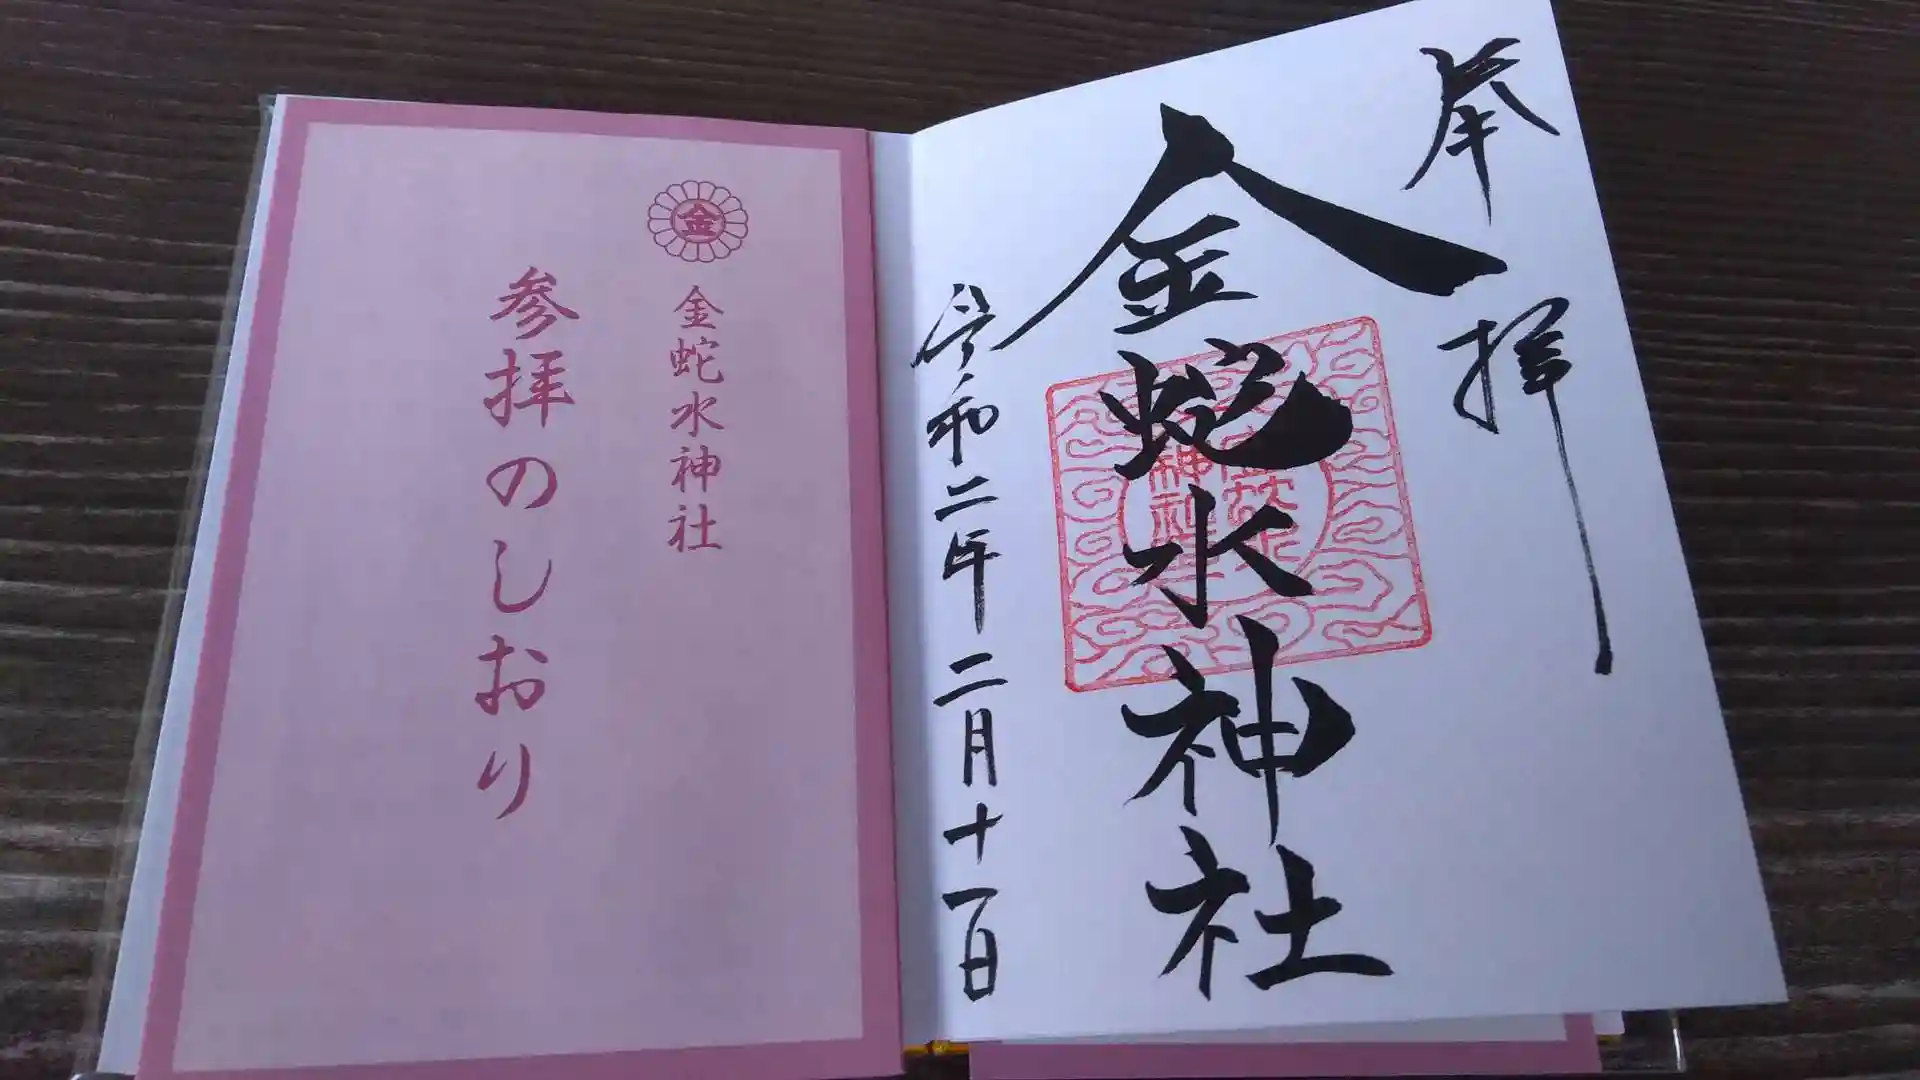 奉拝
金蛇水神社
令和二年二月十一日
金
金蛇水神社
参拝のしおり